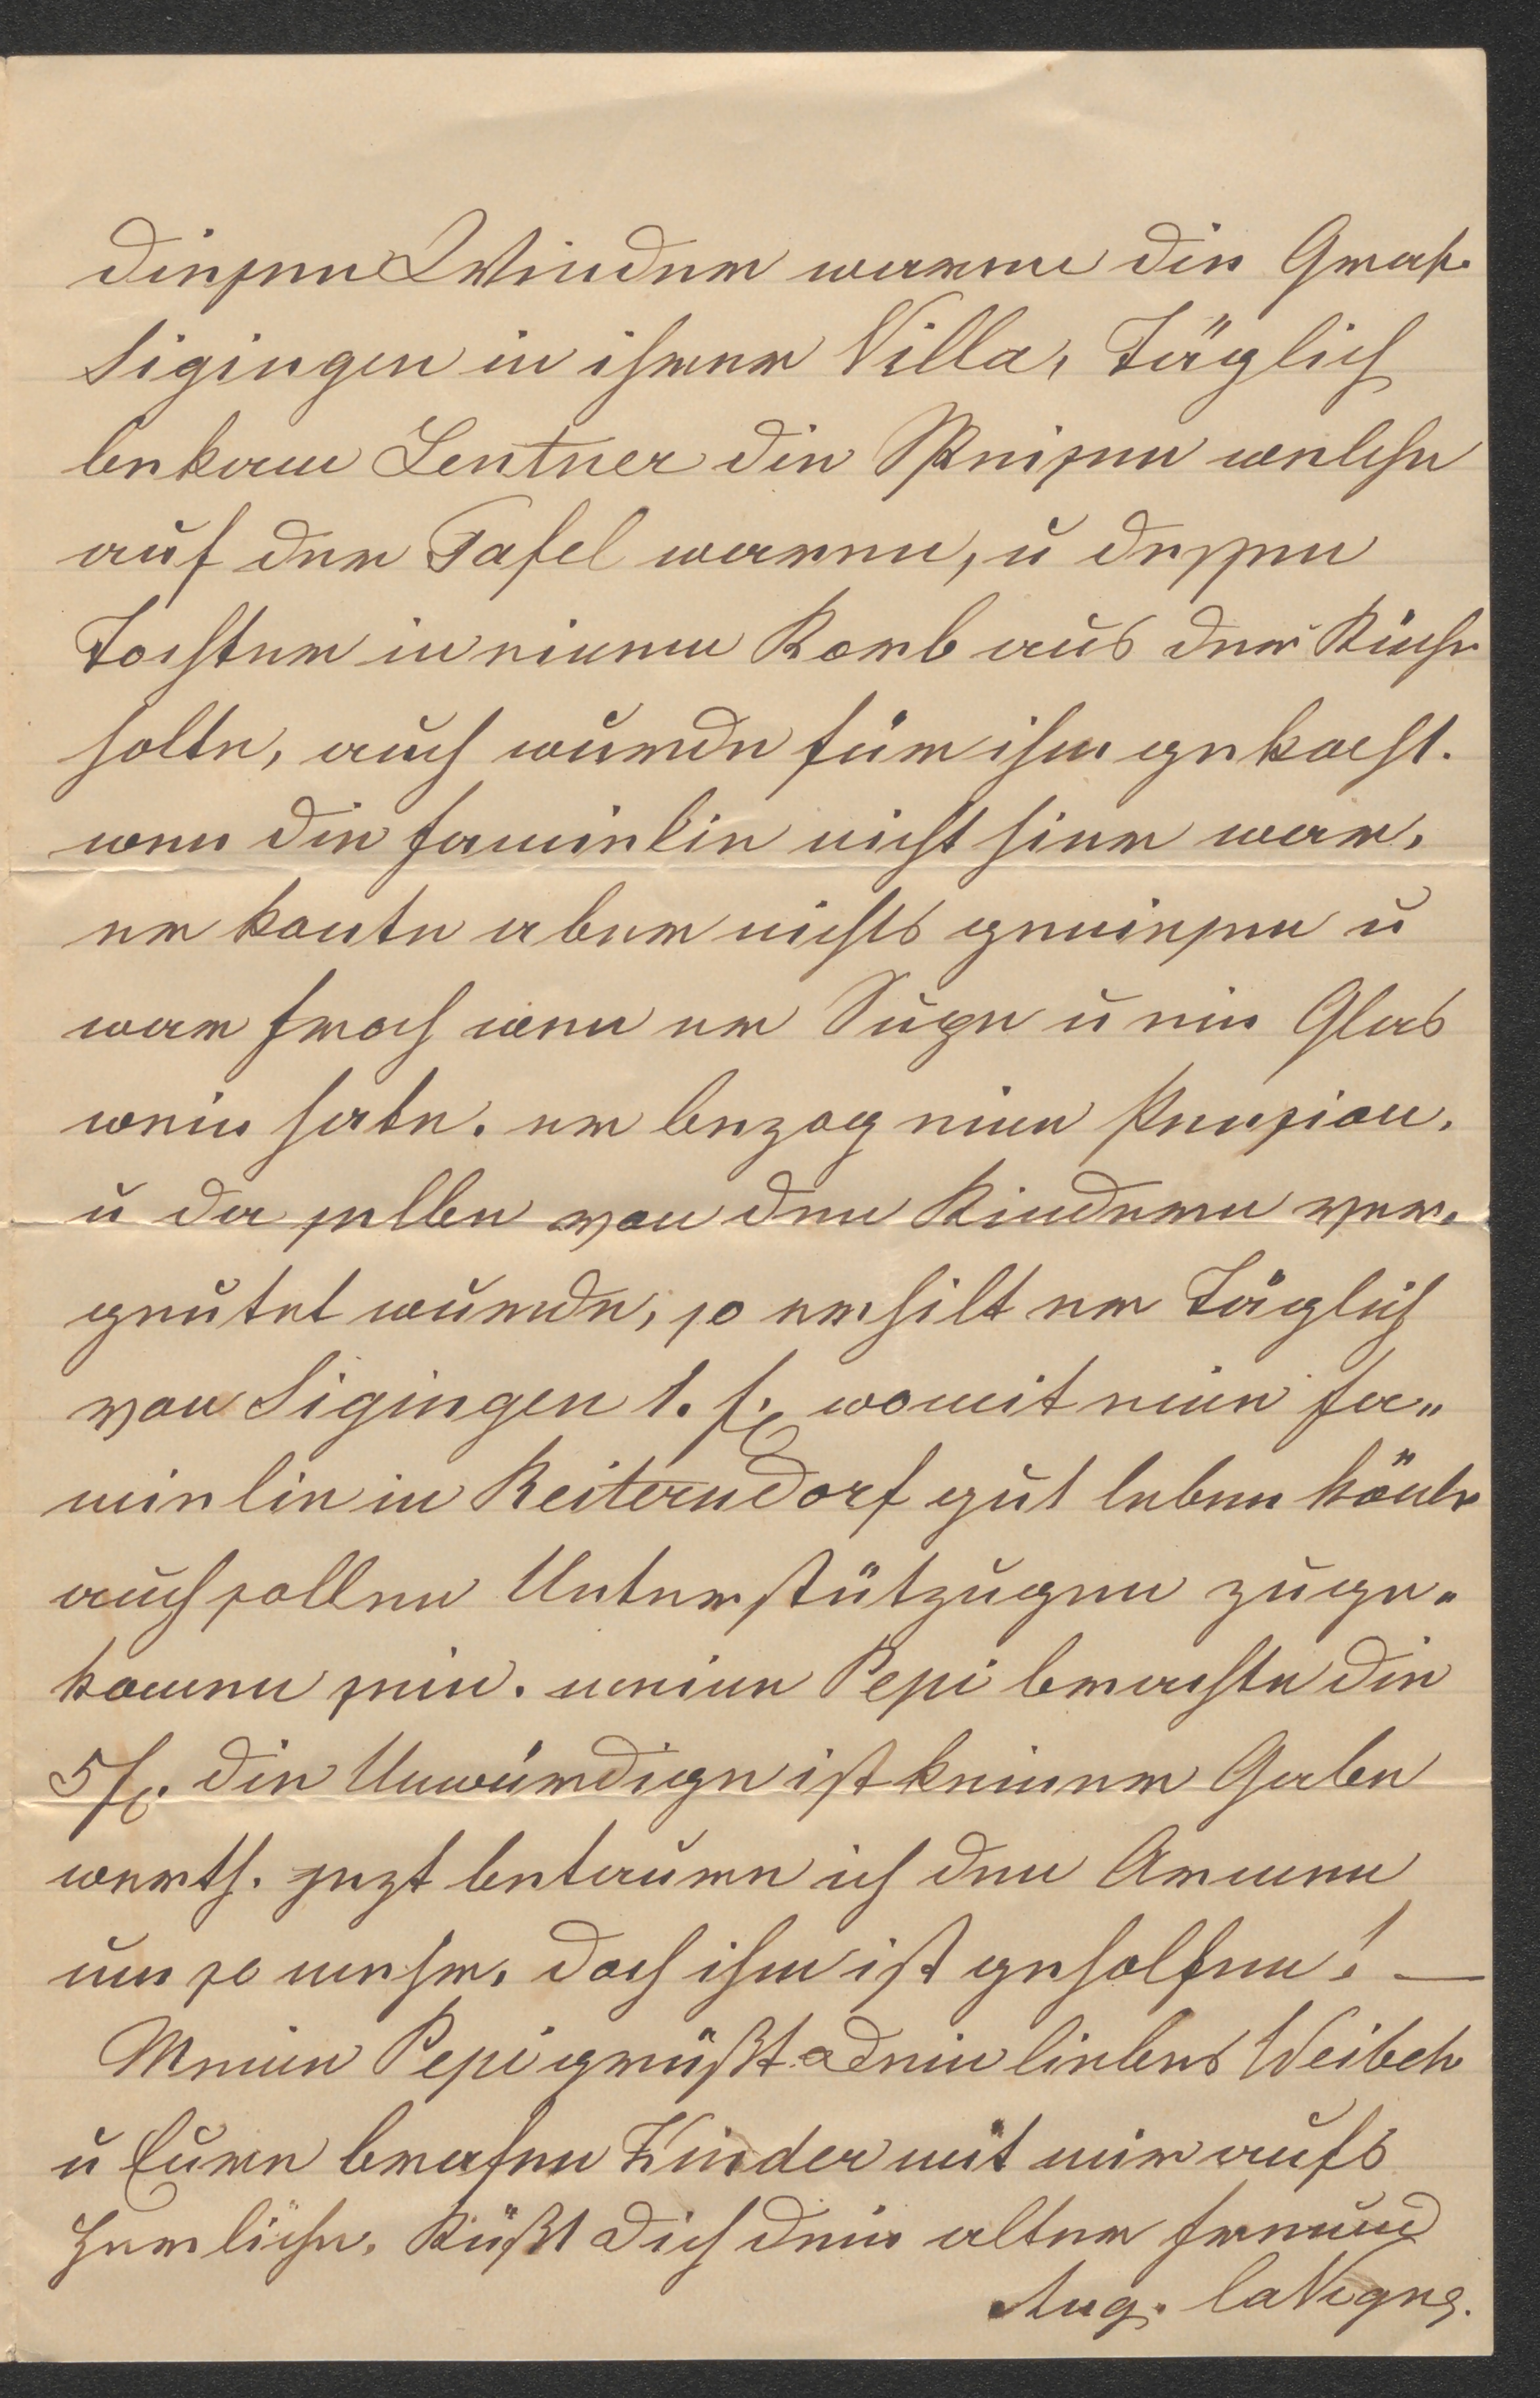 diesen Winder waren die Graf.
Sigingen in ihrer Villa, Täglich
bekam Lentner die Speisen welche
auf der Tafel waren, u dessen
Tochter in einem Korb aus der Küche
holte, auch wurde für ihm gekocht.
wen die Famielie nicht hier war.
er konte aber nichts geniesen u
war froh wen er Supe u ein Glas
wein hate. er bezog eine Pension.
u da selbe von den Kindern ver.
geutet wurde, so erhilt er Täglich
von Sigingen 1. f. womit eine Fa„
mielie in Reiterndorf gut leben könte
auch sollen Unterstützugen zuge„
komen sein. meine Pepi brachte die
5 f. die Unwürdige ist keiner Gabe
werth. jezt betaure ich den Armen
um so mehr. doch ihm ist geholfen! —
Meine Pepi grüßt dein liebes Weibch
u Eure brafen Kinder mit mir aufs
herzliche. Küßt Dich dein alter Freund
Aug. laVigne.